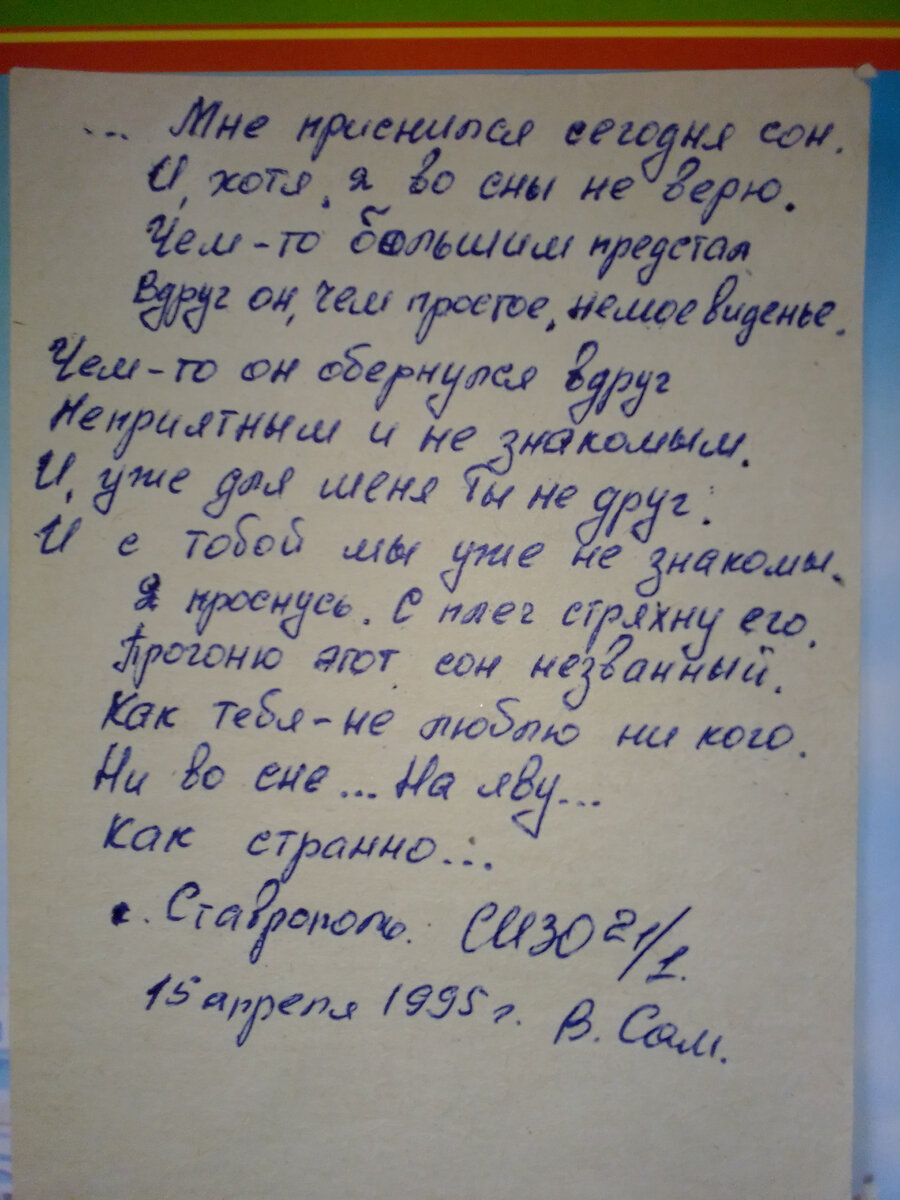 ... Мне приснился сегодня сон.
И, хотя, я во сны не верю.
Чем-то большим предстал
Вдруг он, чем простое, немое виденье.
Чем-то он обернулся вдруг
Неприятным и не знакомым.
И, уже для меня ты не друг.
И с тобой мы уже не знакомы.
Я проснусь. С плеч стряхну его.
Прогоню этот сон незванный.
Как тебя-не люблю ни кого.
Ни во сне... На яву...
Как странно...
г. Ставрополь. СИЗО 21/1.
15 апреля 1995 г. В. Сам.